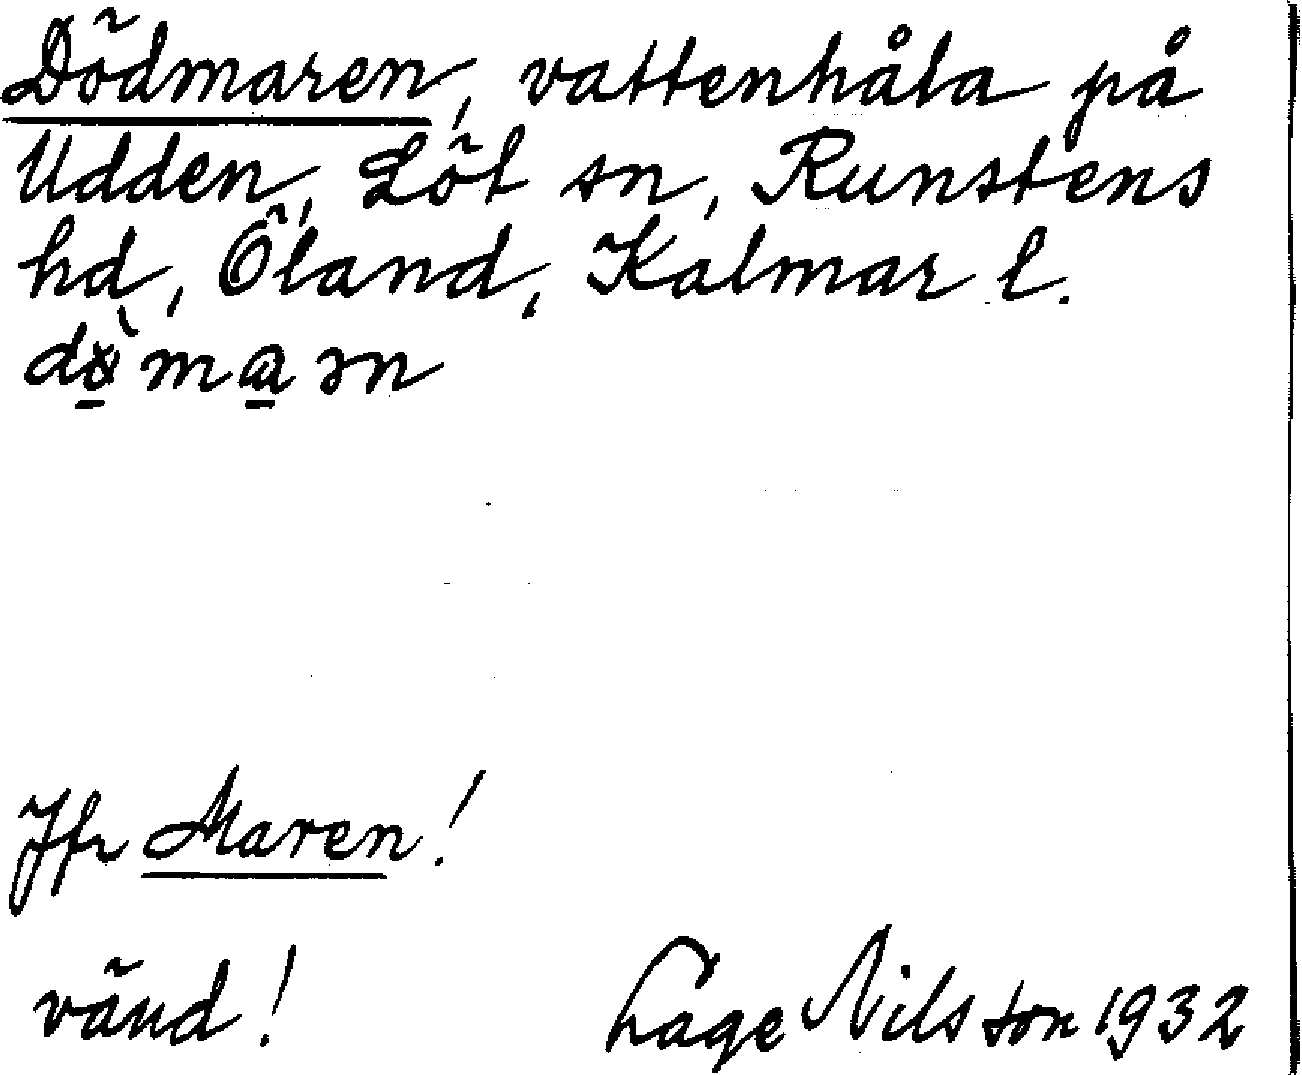 Dödmaren, vattenhåla på
Udden, Löt sn, Runstens
hd, Öland, Kalmar l.
Jfr Maren!
vänd! Lage Nilsson 1932